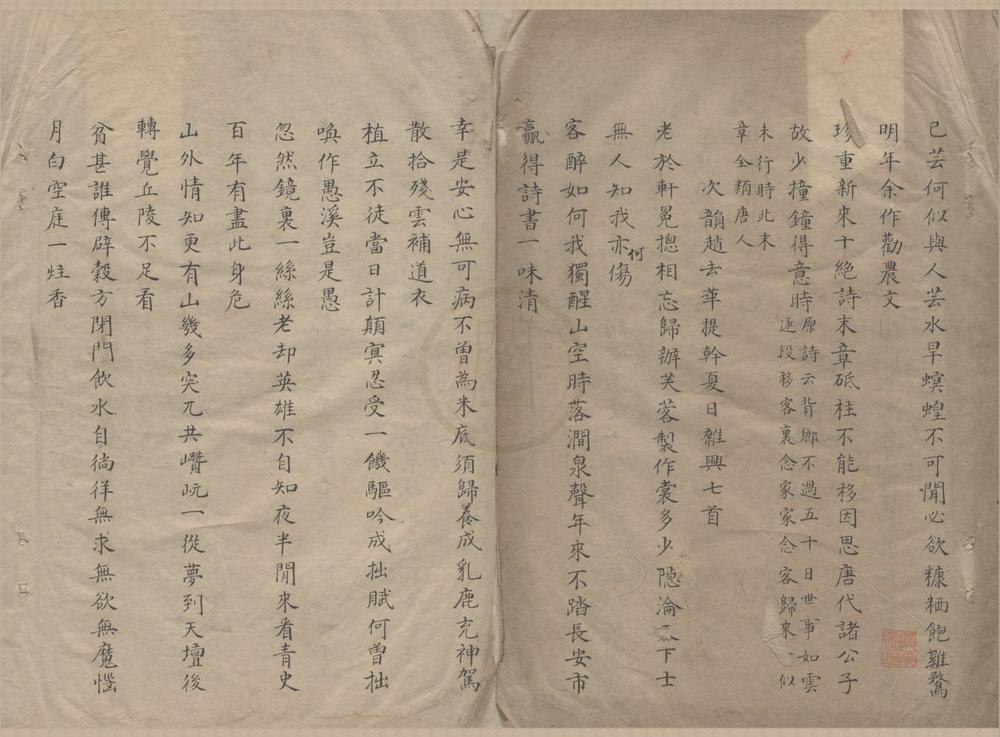 己芸何似與人芸水旱螟蝗不可聞必欲糠粞飽雞鶩
明年余作勸農文
珍重新來十絶詩末章砥柱不能移因思唐代諸公子
故少撞鐘得意時原詩云背鄉不過五十日世事如雲
逐段移客裏念家家念客歸來〻似
未行時此末
章全類唐人
次韻趙去華提幹夏日雜興七首
老於軒冕揔相忘歸辦芙蓉製作裳多少隱淪天下士
無人知我亦何傷
客醉如何我獨醒山空時落澗泉聲年來不踏長安市
贏得詩書一味清
幸是安心無可病不曾為米底須歸養成乳鹿充神駕
散拾殘雲補道衣
植立不徒當日計顛㝠忍受一饑驅吟成拙賦何曾拙
喚作愚溪豈是愚
忽然鏡裏一絲絲老却英雄不自知夜半閒來看青史
百年有盡此身危
山外情知更有山幾多突兀共巑岏一從夢到天壇後
轉覺丘陵不足看
貧甚誰傳辟穀方閉門飲水自徜徉無求無欲無魔惱
月白空庭一炷香